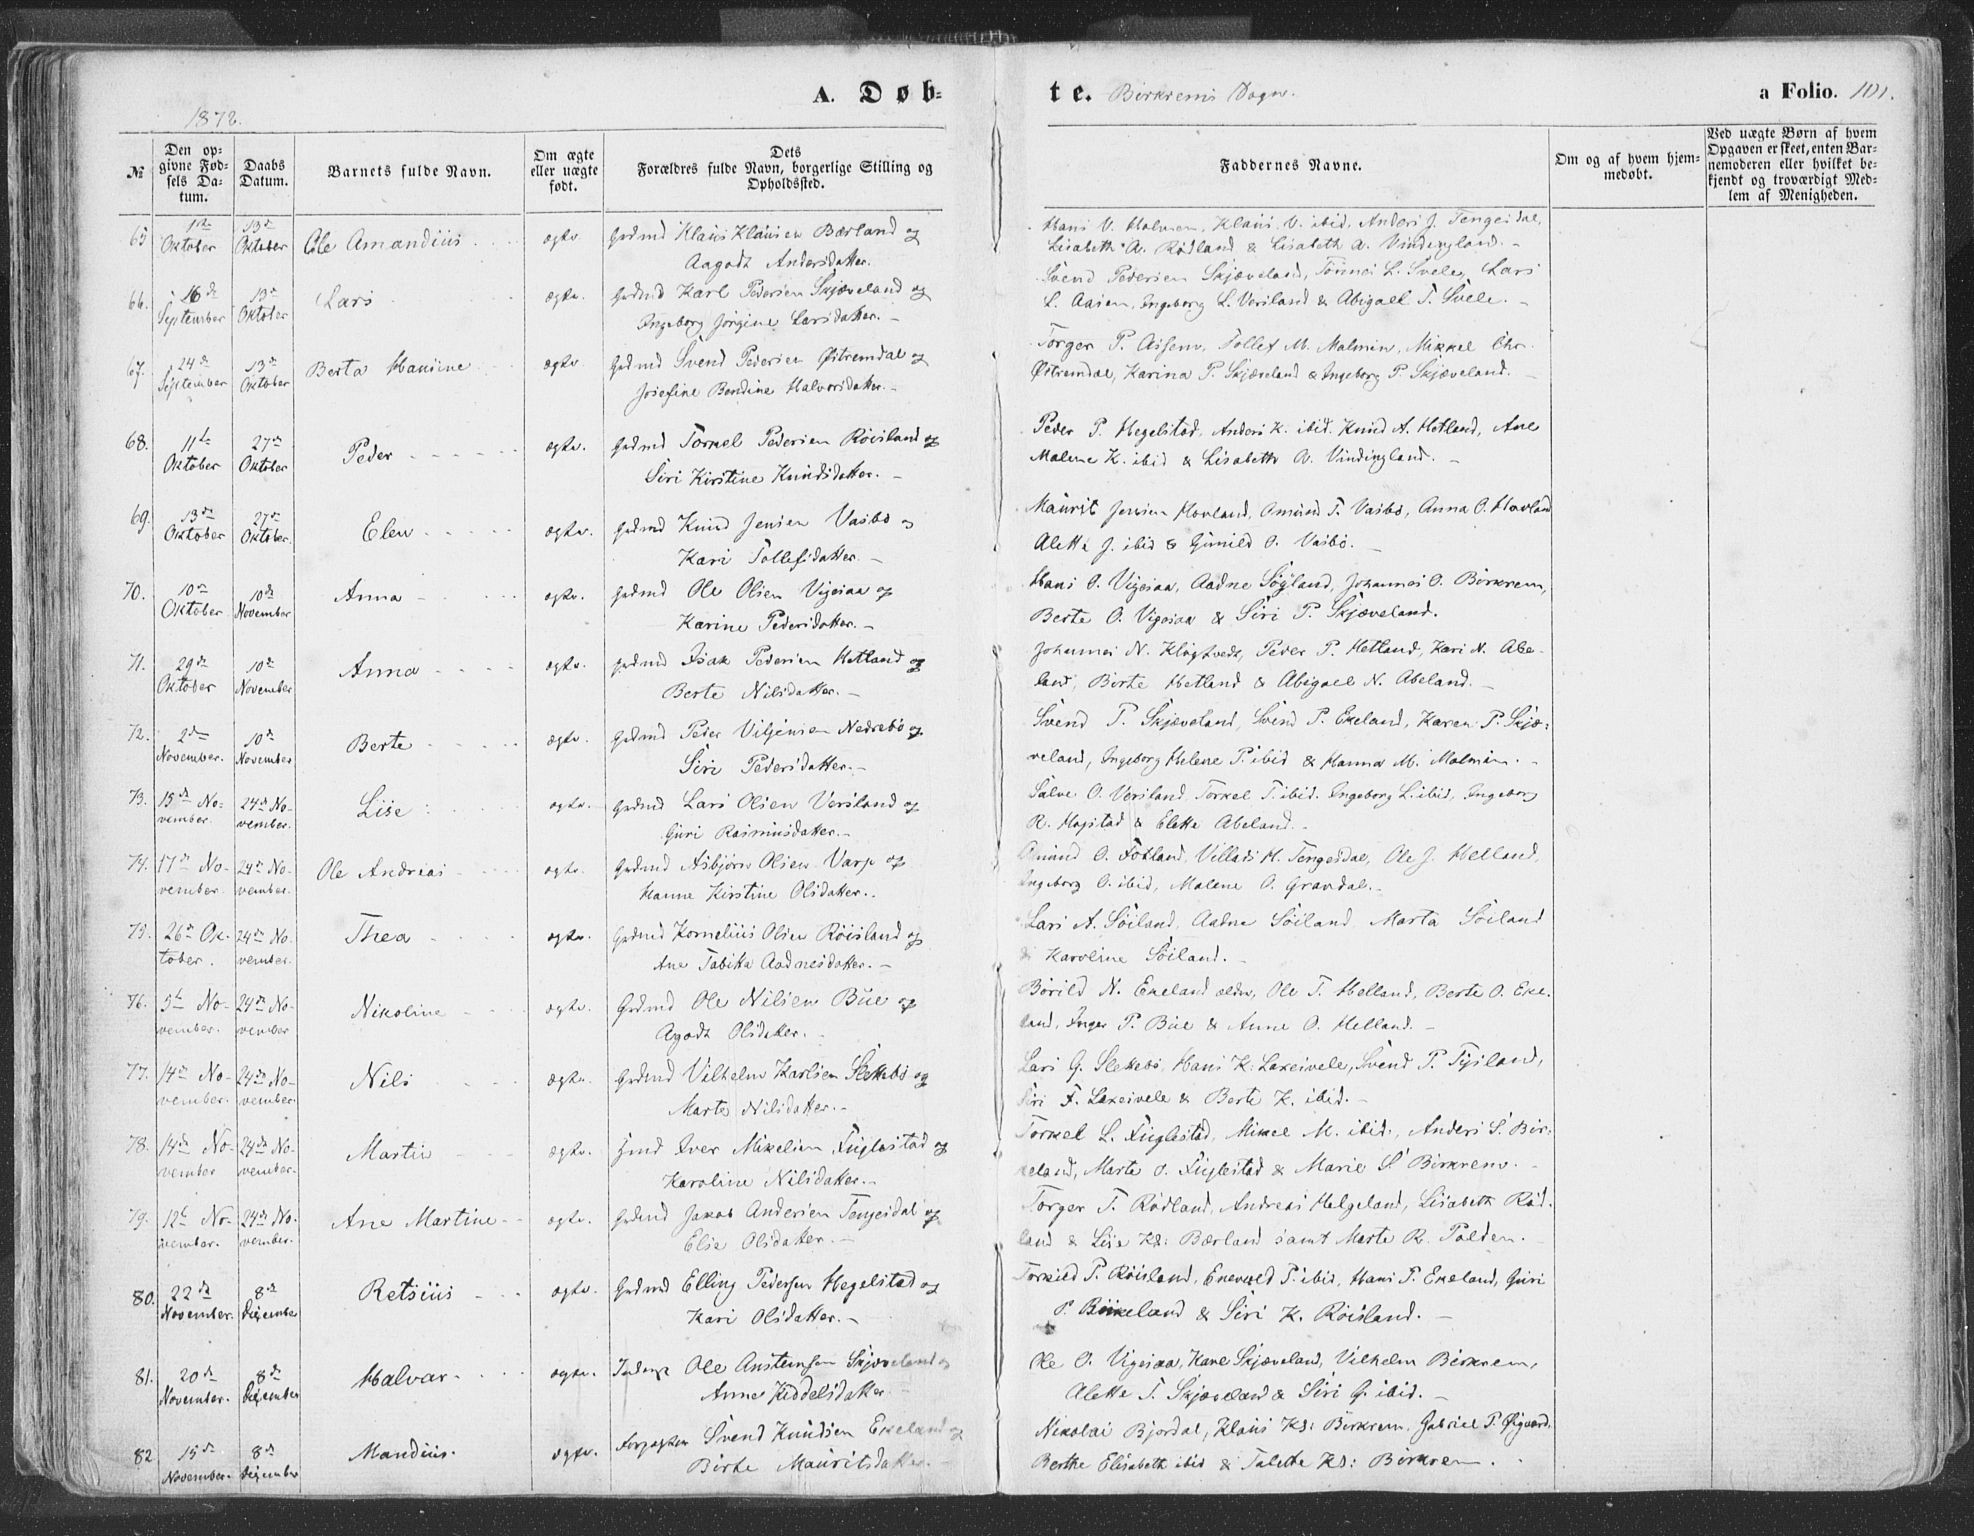 A. Døb-
te. Birkrems Sogn.
a Folio. 101.
1872.
№
Den op-
givne Fød-
sels Da-
tum.
Daabs
Datum.
Barnets fulde Navn.
Om ægte
eller uægte
født.
Dets
Forældres fulde Navn, borgerlige Stilling og
Opholdssted.
Faddernes Navne.
Om og af hvem hjem-
medøbt.
Ved uægte Børn af hvem
Opgaven er skeet, enten Bar-
nemoderen eller hvilket be-
kjendt og troværdigt Med-
lem af Menigheden.
65 1ste Oktober 13de Oktober Ole Amandius ægte Grdmd Klaus Klausen Bærland og
Aagodt Andersdatter.
Hans V. Holmen, Klaus V. ibid, Anders J. Tengesdal,
Lisabeth A. Rødland & Lisabeth A. Vindingland. -
66. 16de September 13de Oktober Lars ægte. Grdmd Karl Pedersen Skjæveland og
Ingeborg Jørgine Larsdatter. -
Svend Pedersen Skjæveland, Tønnes L. Svele, Lars
L. Aasen, Ingeborg L. Versland & Abigael T. Svele. -
67. 24de September 13de Oktober Berta Hansine ægte Grdmd Svend Pedersen Østremdal og
Josefine Bendine Halvorsdatter. -
Torger P. Aasen, Tollef M. Malmin, Mikkel Chr.
Østremdal, Karina P. Skjæveland & Ingeborg P. Skjæveland.
68. 11te Oktober 27de Oktober Peder ægte. Grdmd Torkel Pedersen Röisland og
Siri Kirstine Knudsdatter. -
Peder P. Hegelstad, Anders K. ibid. Knud A. Hetland, Ane
Malene K. ibid & Lisabeth A. Vindingland. -
69. 13de Oktober 27de Oktober Elen ægte. Grdmd Knud Jensen Vasbø og
Kari Tollefsdatter. -
Maurit Jensen Hovland, Omund T. Vasbö, Anna O. Hovland
Aletta J. ibid & Gunild O. Vasbö. -
70. 10de Oktober 10de November Anna ægte. Grdmd Ole Olsen Vigesaa og
Karine Pedersdatter. -
Hans O. Vigesaa, Aadne Söyland, Johannes O. Birkrem,
Berte O. Vigesaa & Siri P. Skjæveland.
71. 29de Oktober 10de November Anna ægte. Grdmd Isak Pedersen Hetland og
Berte Nilsdatter. -
Johannes N. Klögtvedt, Peder P. Hetland, Kari N. Abe-
land, Birte Hetland & Abigael N. Abeland. -
72. 2den November. 10de November Berte ægte. Grdmd Peder Nedrebö og
Siri Pedersdatter. -
Svend T. Skjæveland, Svend P. Ekeland, Karen P. Skjæ-
veland, Ingeborg Helene P. ibid & Hanna M. Malmin. -
73. 15de No-vember. 24de No-vember. Lise ægte. Grdmd Lars Olsen Versland og
Guri Rasmusdatter. -
Salve O. Versland, Torkel T. ibid. Ingeborg L. ibid, Ingeborg
R. & Elette Abeland. -
74. 17de No-vember 24de No-vember. Ole Andreas ægte. Grdmd Asbjørn Olsen Varp og
Hanne Kirstine Olsdatter.
Omund O. Fotland, Villads H. Tengesdal, Ole J. Helland,
Ingeborg O. ibid, Malene O. Gravdal. -
75. 26de Ok-tober. 24de No-vember. Thea ægte. Grdmd Kornelius Olsen Röisland og
Ane Tabita Aadnesdatter. -
Lars A. Söiland, Aadne Söiland Marta Söiland
& Karoline Söiland. -
76. 5te No-vember. 24de No-vember Nikoline ægte. Grdmd Ole Nilsen Bue og
Agodt Olsdatter. -
Börild N. Ekeland ældre, Ole T. Helland, Berte O. Eke-
land, Inger P. Bue & Anne O. Helland. -
77. 14de No-vember. 24de No-vember. Nils ægte. Grdmd Vilhelm Karlsen Slettebö og
Marte Nilsdatter. -
Lars G. Slettebö, Hans K. Laxesvele, Svend P. Tysland,
Siri F. Laxesvele & Berte K. ibid. -
78. 14de No-vember 24de No-vember. Martin ægte. Gmd Iver Mikelsen Fuglestad og
Karoline Nilsdatter. -
Torkel L. Fuglestad, Mikel M. ibid., Anders S. Bir-
keland, Marte O. Fuglestad & Marie S. Birkrem. -
79. 12te No-vember. 24de No-vember. Ane Martine ægte. Grdmd Jakob Andersen Tengesdal og
Elie Olsdatter. -
Torger T. Rødland, Andreas Helgeland, Lisabeth Rød-
land & Lise Kd: Bærland samt Marte R. Tolden. -
80. 22de November. 8de December Retsius ægte. Grdmd Elling Pedersen Hegelstad og
Kari Olsdatter. -
Torkild P. Röisland, Enevald P. ibid, Hans P. Ekeland, Guri
P. Birkeland & Siri K. Röisland. -
81. 20de November. 8de December Halvar ægte. Inderst Ole Anstensen Skjæveland og
Anne Kiddelsdatter
Ole O. Vigesaa, Kane Skjæveland, Vilhelm Birkrem,
Alette T. Skjæveland & Siri G. ibid. -
82 15de November. 8de December Mandius. ægte. Forpagter Svend Knudsen Ekeland og
Birte Mauritsdatter. -
Nikolai Bjordal, Klaus Ks: Birkrem, Gabriel P. Øigaard,
Berthe Elisabeth ibid & Talette Kd: Birkrem.